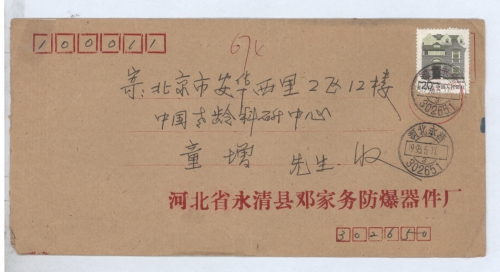 100011
674
寄:北京市安华西里2区12楼
中国老龄科研中心
童增 先生 收
河北省永清县邓家务防爆器件厂
302650
20
302651
河北永清
302651